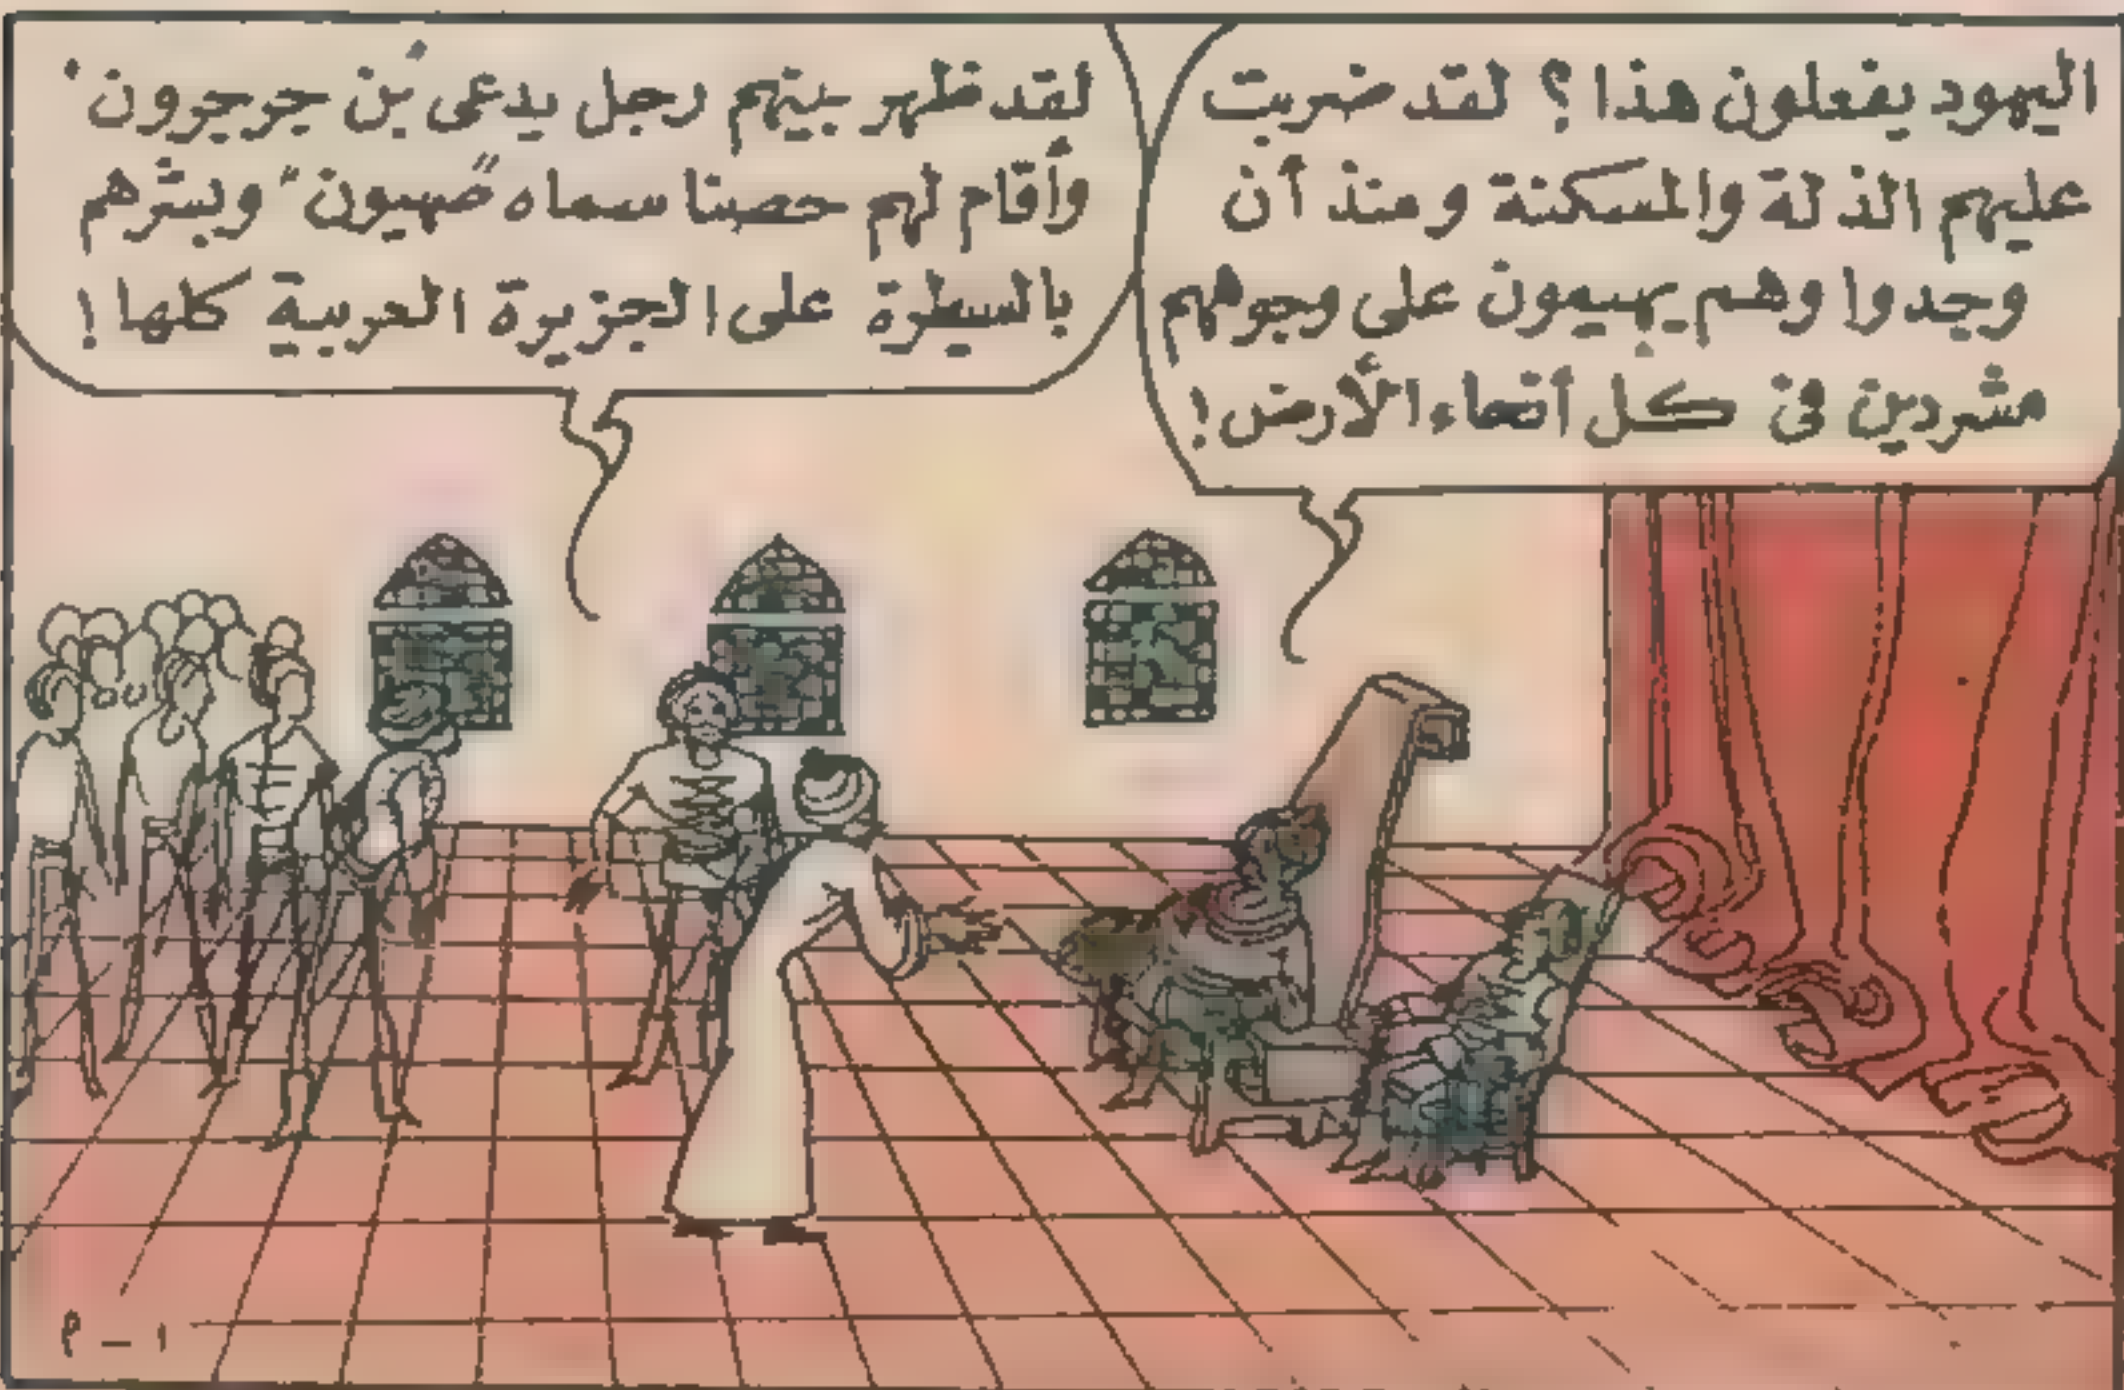 اليهود يفعلون هذا؟ لقد ضربت
عليهم الذلة والمسكنة ومنذ أن
وجدوا وهم يهيمون على وجوههم
مشردين في كل أنحاء الأرض!
لقد ظهر بينهم رجل يدعى بن جرجرون
وأقام لهم حصنا سماه "صهيون" وبشرهم
بالسيطرة على الجزيرة العربية كلها!
١ - م